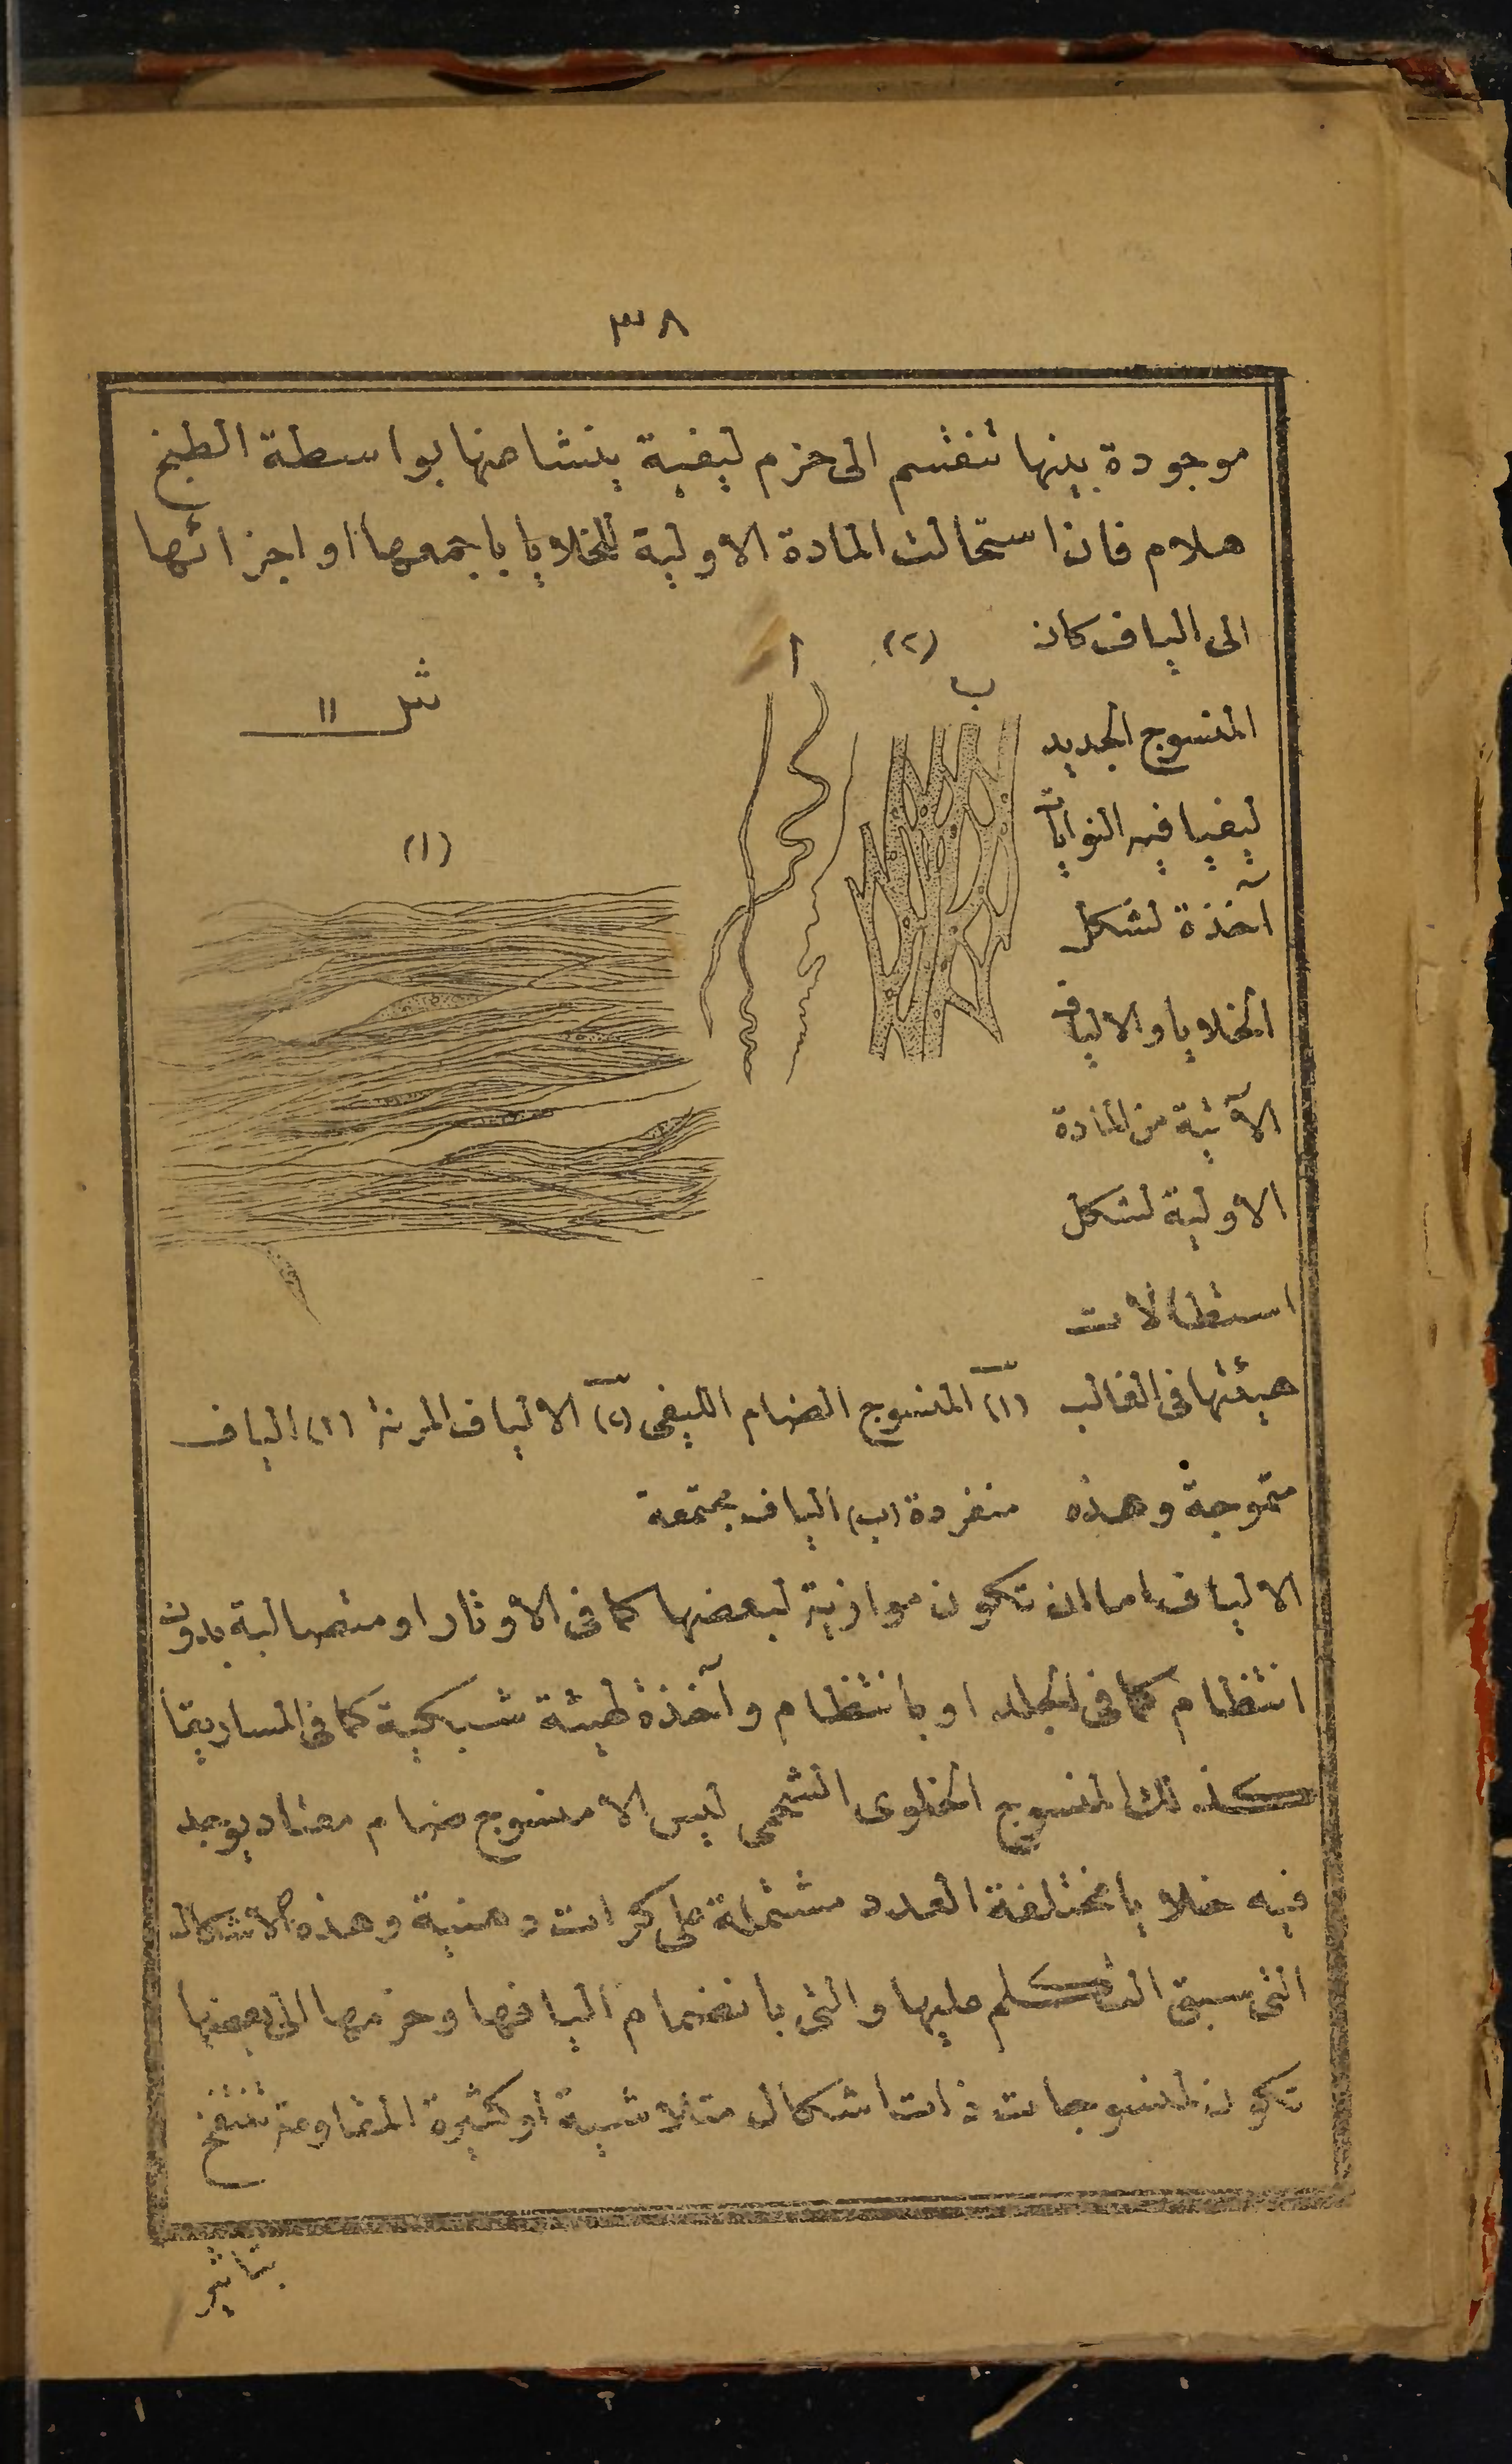 ٣٨
موجودة بينها تنقسم الى حزم ليفية ينشا منها بواسطة الطبخ
هلام فاذا استحالت المادة الاولية للخلايا باجمعها او اجزائها
الى الياف كان
المنسوج الجديد
ليفيا فيه النوايات
آخذة لشكل
الخلايا والالياف
الآتية من المادة
الاولية لشكل
استطالات
(٢)
أ
ب
شكل ١١
(١)
هيئتها فى الغالب
(١) المنسوج الضام الليفى (٢) الالياف المرنة (ا) الياف
متموجة وهذه
منفردة (ب) الياف مجتمعة
الالياف اما ان تكون موازية لبعضها كما فى الاوتار او متصالبة بدون
انتظام كما فى الجلد او بانتظام وآخذة لهيئة شبكية كما فى المساريقا
كذلك المنسوج الخلوى الشحمى ليس الا منسوج ضام معتاد يوجد
فيه خلايا مختلفة العدد مشتملة على كرات دهنية وهذه الاشكال
التى سبق التكلم عليها والتى بانضمام اليافها وحزمها الى بعضها
تكون المنسوجات ذات اشكال متلاشية او كثيرة المقاومة تنتفخ
بتاثير